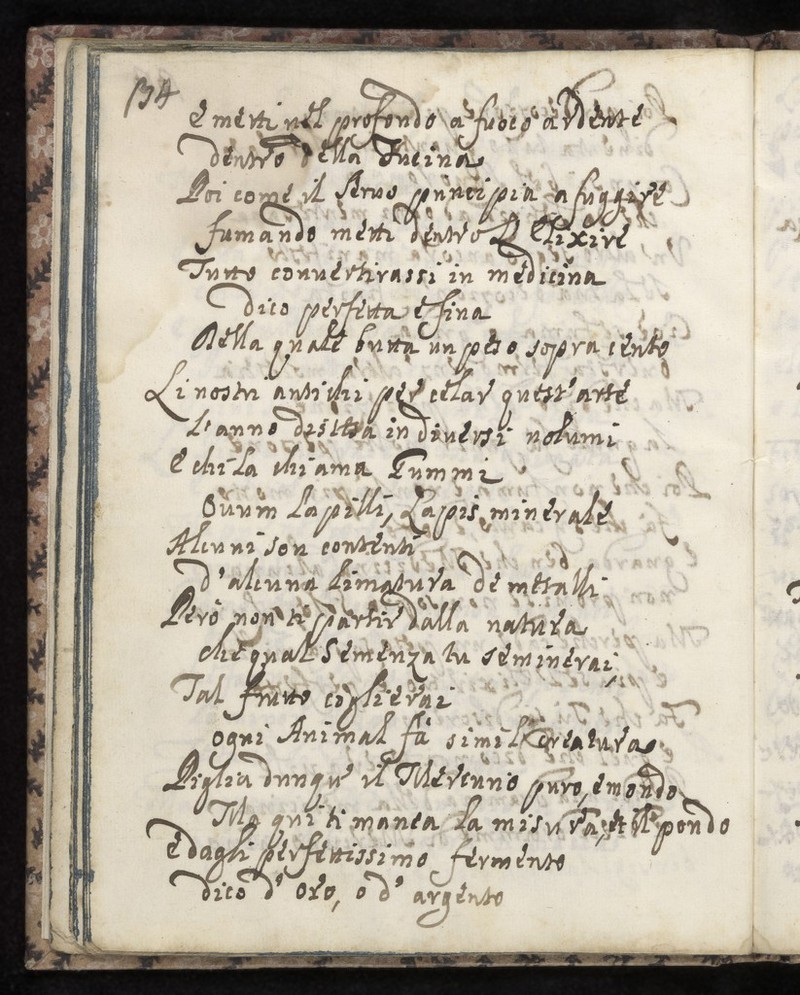 134
e metti nel profondo a fuoco ardente
dentro della Fucina
Poi come il servo principia a fuggire
fumando metti dentro L'Elixire
Tutto convertirassi in medicina
Dico perfetta e fina
Della quale butta un peso sopra cento
Li nostri antichi per celar quest'arte
l'anno descritta in diversi volumi
E chi la chiama Gummi
Ouum Lapilli, Lapis minerale
Alcuni son contenti
d'alcuna limatura de metalli
Però non ti partir dalla natura
che qual Semenza tu seminerai,
Tal frutto coglierai
ogni Animal fà simil Creatura
Piglia dunque il Mercurio puro, e mondo
Ma qui ti manca la misura, et il pondo
E dagli perfettissimo fermento
dico d'Oro, o d'argento